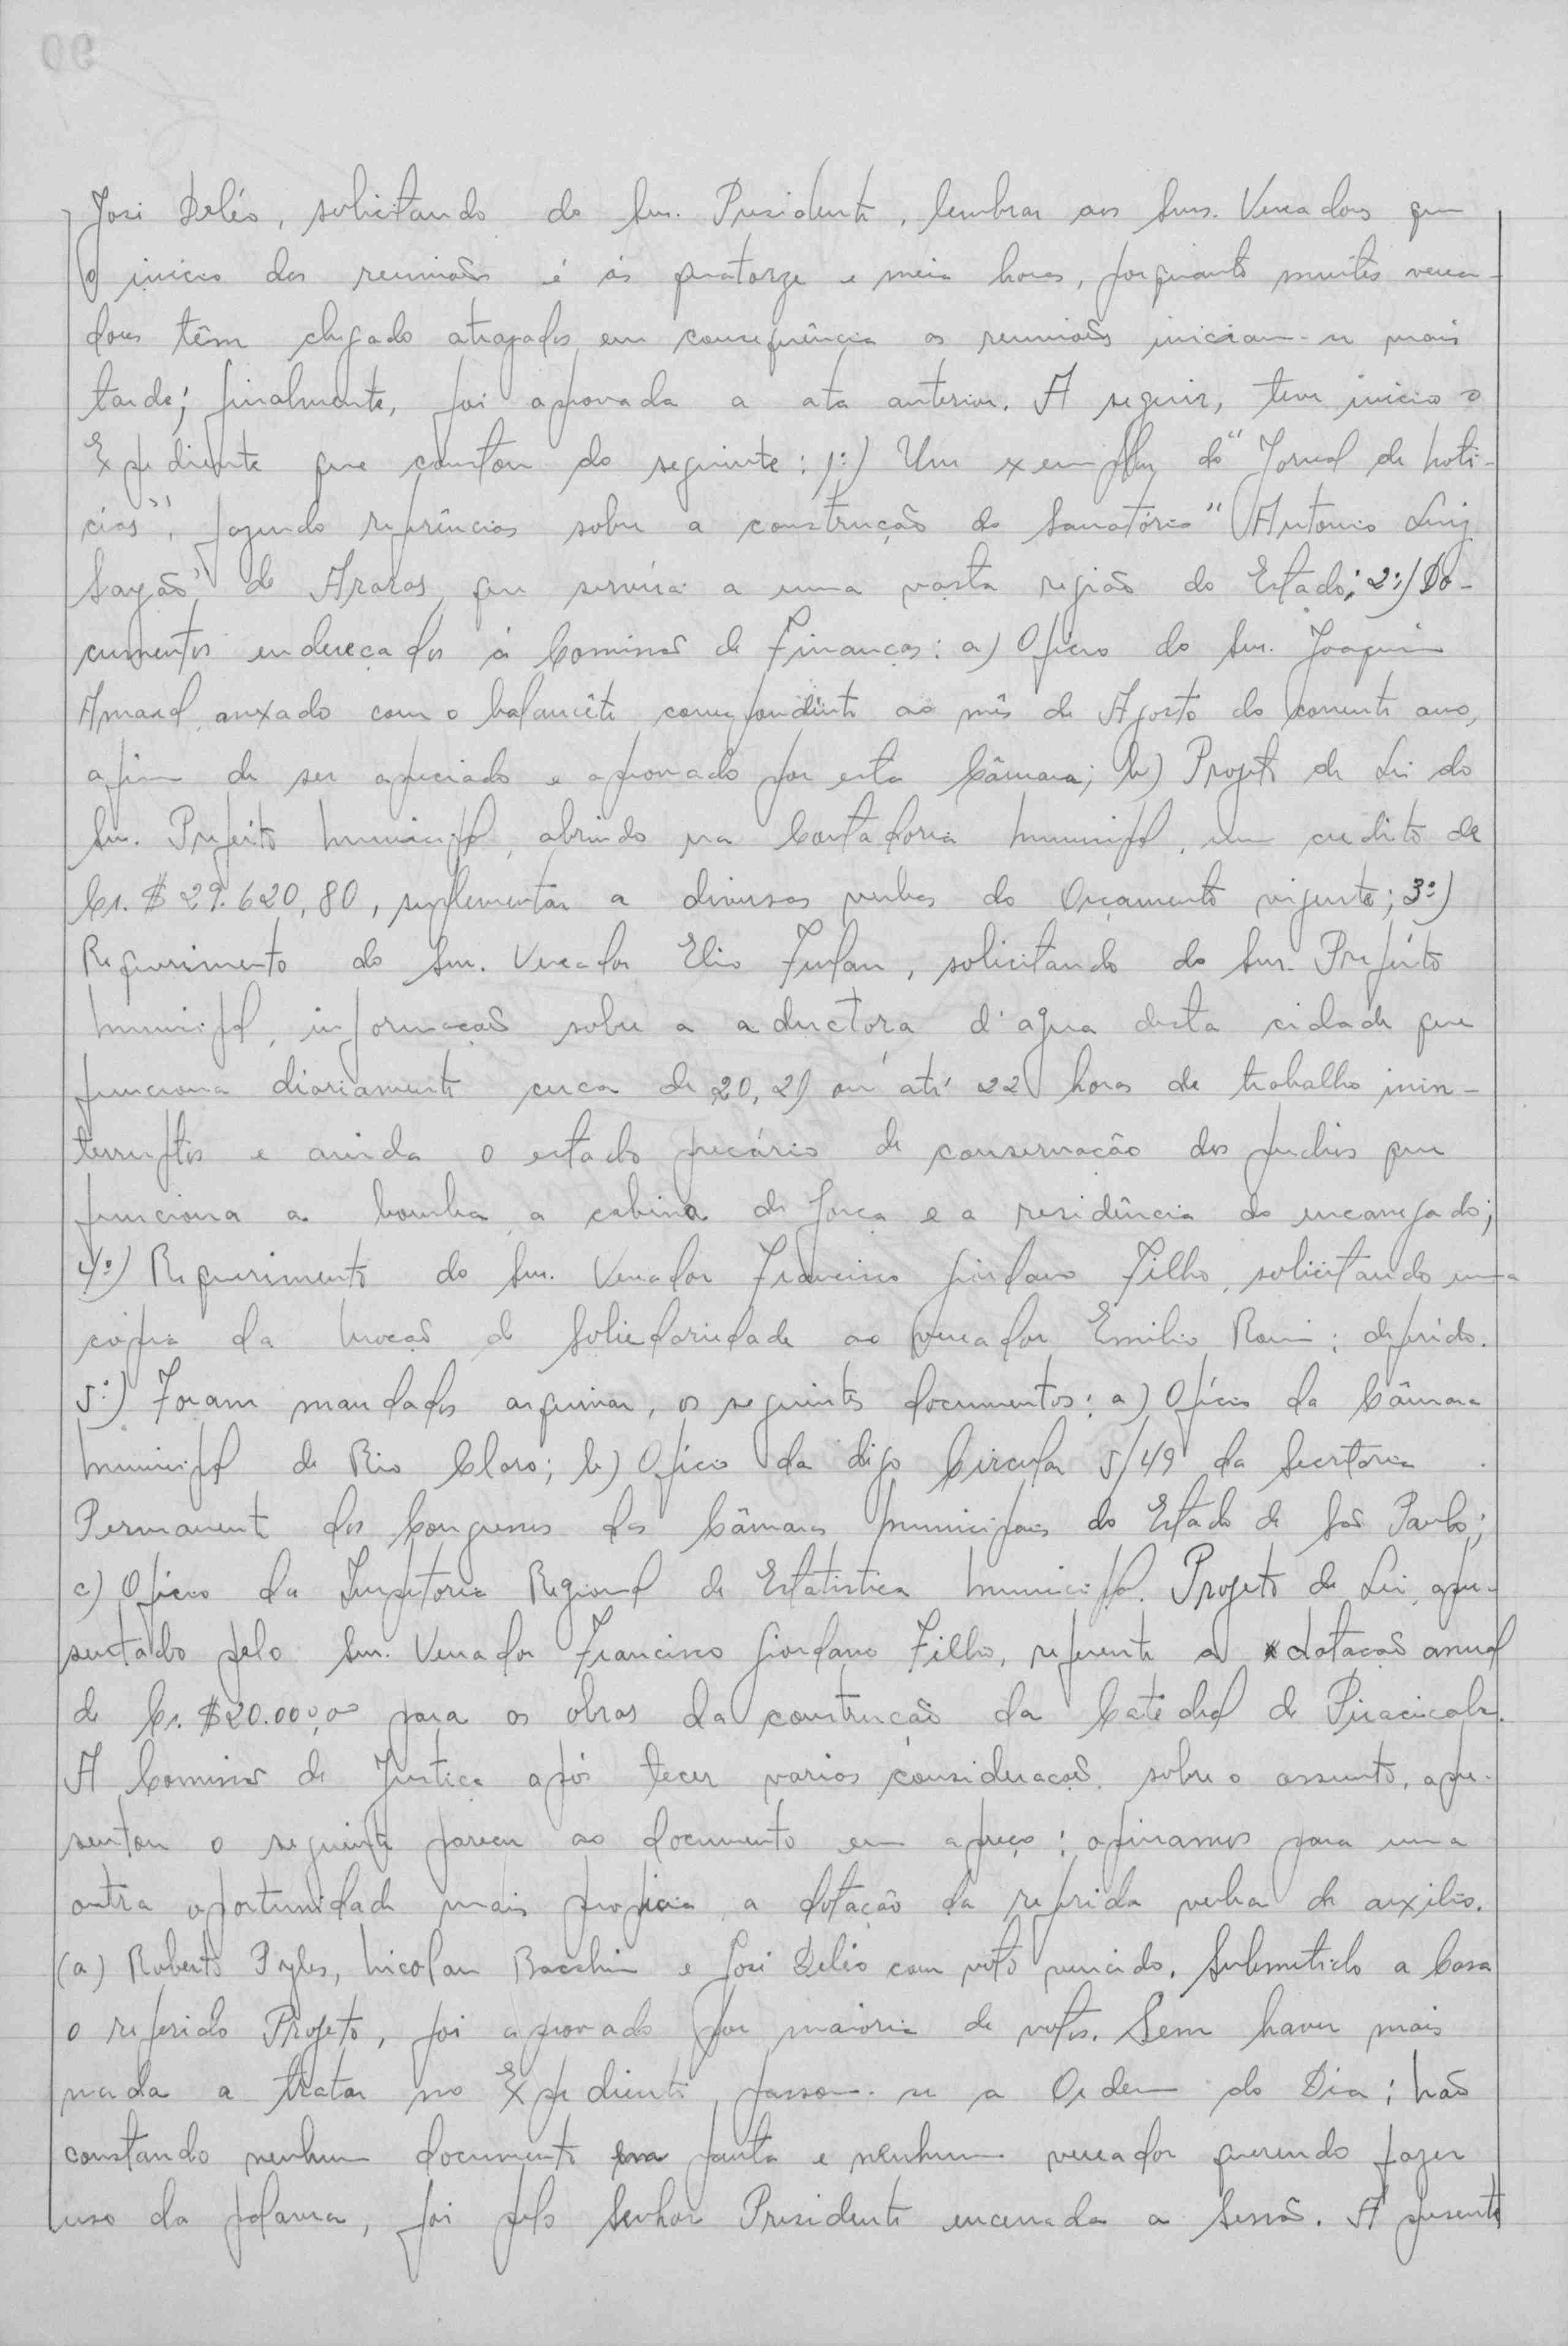 José Deléo, solicitando do Snr. Presidente, lembrar aos Snrs. Vereadores que
o inicio das reuniões é ás quatorze e meia horas, porquanto muitos verea-
dores têm chegado atrazados em consequência as reuniões iniciam-se mais
tarde; finalmente, foi aprovada a ata anterior. A seguir, teve inicio o
Expediente que constou do seguinte: 1º) Um exemplar do "Jornal de Noti-
cias", fazendo referências sobre a construção do Sanatório "Antonio Luiz
Sayão" de Araras, que servirá a uma vasta região do Estado; 2º) Do-
cumentos endereçados á Comissão de Finanças: a) Oficio do Snr. Joaquim
Amaral, anxado com o balancête correspondente ao mês de Agosto do corrente ano,
afim de ser apreciado e aprovado por esta Câmara; b) Projeto de Lei do
Snr. Prefeito Municipal, abrindo na Contadoria Municipal, um credito de
Cr. $ 29.620,80, suplementar a diversas verbas do Orçamento vigente; 3º)
Requerimento do Snr. Vereador Elio Furlan, solicitando do Snr. Prefeito
Municipal, informações sobre a aductora d'agua desta cidade que
funciona diariamente cerca de 20, 21 ou até 22 horas de trabalho inin-
terruptos e ainda o estado precário de conservação dos predios que
funciona a bomba, a cabina de força e a residência do encarregado;
4º) Requerimento do Snr. Vereador Francisco Giordano Filho, solicitando uma
cópia da Moção de Soliedariedade ao vereador Emilio Romi; deferido.
5º) Foram mandados arquivar, os seguintes documentos: a) Oficio da Câmara
Municipal de Rio Claro; b) Oficio da digo Circular 5/49 da Secretaria
Permanente dos Congressos das Câmaras Municipais do Estado de São Paulo;
c) Oficio da Inspetoria Regional de Estatistica Municipal. Projeto de Lei, apre-
sentado pelo Snr. Vereador Francisco Giordano Filho, referente a dotação anual
de Cr. $20.000,00 para as obras da construção da Catedral de Piracicaba.
A Comissão de Justiça após tecer varias considerações sobre o assunto, apre-
sentou o seguinte parecer ao documento em apreço: opinamos para uma
outra oportunidade mais propicia a dotação da referida verba de auxilio.
(a) Roberto Pyles, Nicolau Bacchin e José Deléo com voto vencido. Submetido a Casa
o referido Projeto, foi aprovado por maioria de votos. Sem haver mais
nada a tratar no Expediente, passou-se a Ordem do Dia: Não
constando nenhum documento em pauta e nenhum vereador querendo fazer
uso da palavra, foi pelo Senhor Presidente encerrada a Sessão. A presente